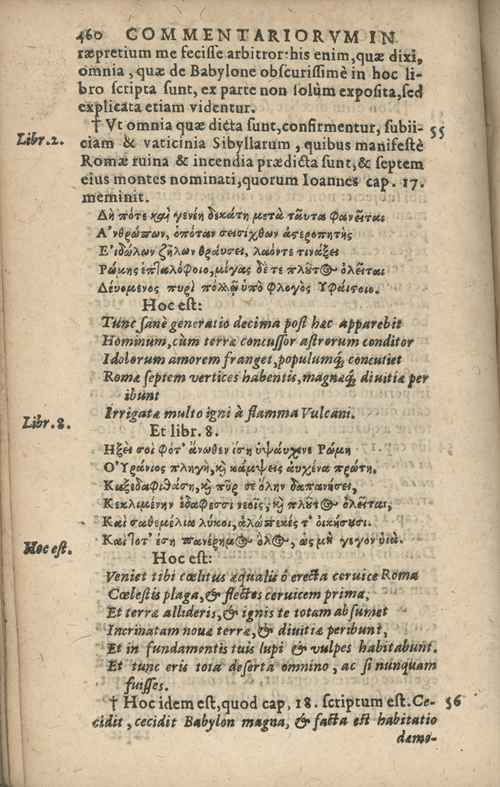 460 COMMENTARIORVM IN
ræpretium me fecisse arbitror: his enim, quæ dixi,
omnia, quæ de Babylone obscurissimè in hoc li-
bro scripta sunt, ex parte non solùm exposita, sed
explicata etiam videntur.
† Vt omnia quæ dicta sunt, confirmentur, subii- 55
Libr. 2. ciam & vaticinia Sibyllarum, quibus manifestè
Romæ ruina & incendia prædicta sunt, & septem
eius montes nominati, quorum Ioannes cap. 17.
meminit.
Δὴ πότε καὶ γενέη δεκάτη μετὰ ταῦτα φανεῖται
Ἀ'νθρώπων, ὁπόταν σεισίχθων ἀστεροπητὴς
Ε'ιδώλων ζῆλων θραύσει, λαόντε τινάξει
Ρώμης ἑπταλόφοιο, μέγας δέ τε πλοῦτος ὀλεῖται
Δευόμενος πυρὶ πολλῷ ὑπὸ φλογὸς Ὑφαίστοιο.
Hoc est:
Tunc sanè generatio decima post hæc apparebit
Hominum, cùm terræ concussor astrorum conditor
Idolorum amorem franget, populumq́; concutiet
Romæ septem vertices habentis, magnæq́; diuitiæ per
ibunt
Irrigatæ multo igni à flamma Vulcani.
Libr. 8. Et libr. 8.
Ηξει σοὶ ϕότ' ἄνωθεν ἴση ὑψάυχενε Ρώμη
Ο'υράνιος πληγὴ, καὶ κάμψεις ἀυχένα πρώτη,
Καξεδαφιθάση, καὶ πῦρ σε ὅλην δαπανήσει,
Κεκλιμένην ἐδαφεσσι νεοῖς, καὶ πλοῦτος ὀλεῖται,
Καὶ σαθεμέλια λύκοι, ἀλώπεκές τ' ὀικήσουσι.
Καὶ τοτ' ἔση πανέρημος ὅλος, ὡς μὴ γεγονυῖα.
Hoc est. Hoc est:
Veniet tibi cœlitus æqualis ô erecta ceruice Roma
Cœlestis plaga, & flectes ceruicem prima,
Et terræ allideris, & ignis te totam absumet
Incrinatam nouæ terræ, & diuitiæ peribunt,
Et in fundamentis tuis lupi & vulpes habitabunt.
Et tunc eris tota deserta omnino, ac si nunquam
fuisses.
† Hoc idem est, quod cap. 18. scriptum est. Ce- 56
cidit, cecidit Babylon magna, & facta est habitatio
dæmo-